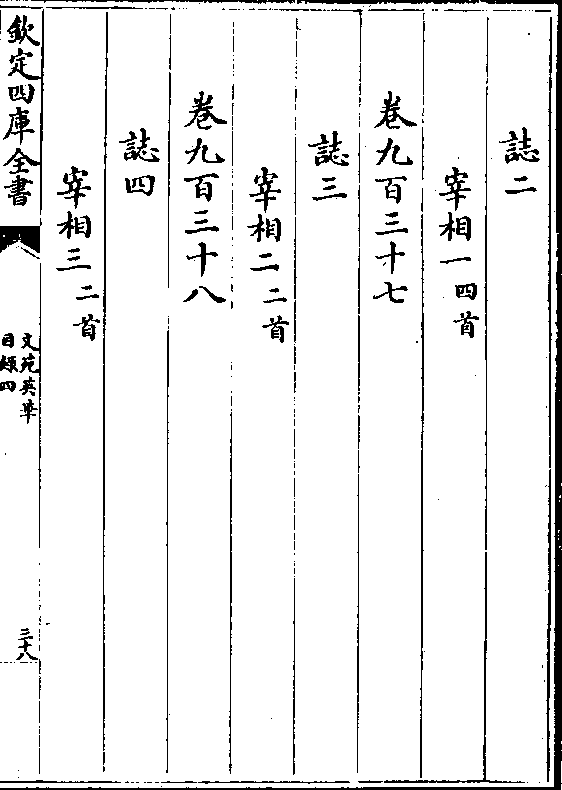 誌二
宰相一四首
卷九百三十七
誌三
宰相二二首
卷九百三十八
誌四
宰相三二首
欽定四庫全書
文苑英華
目録四
三十八